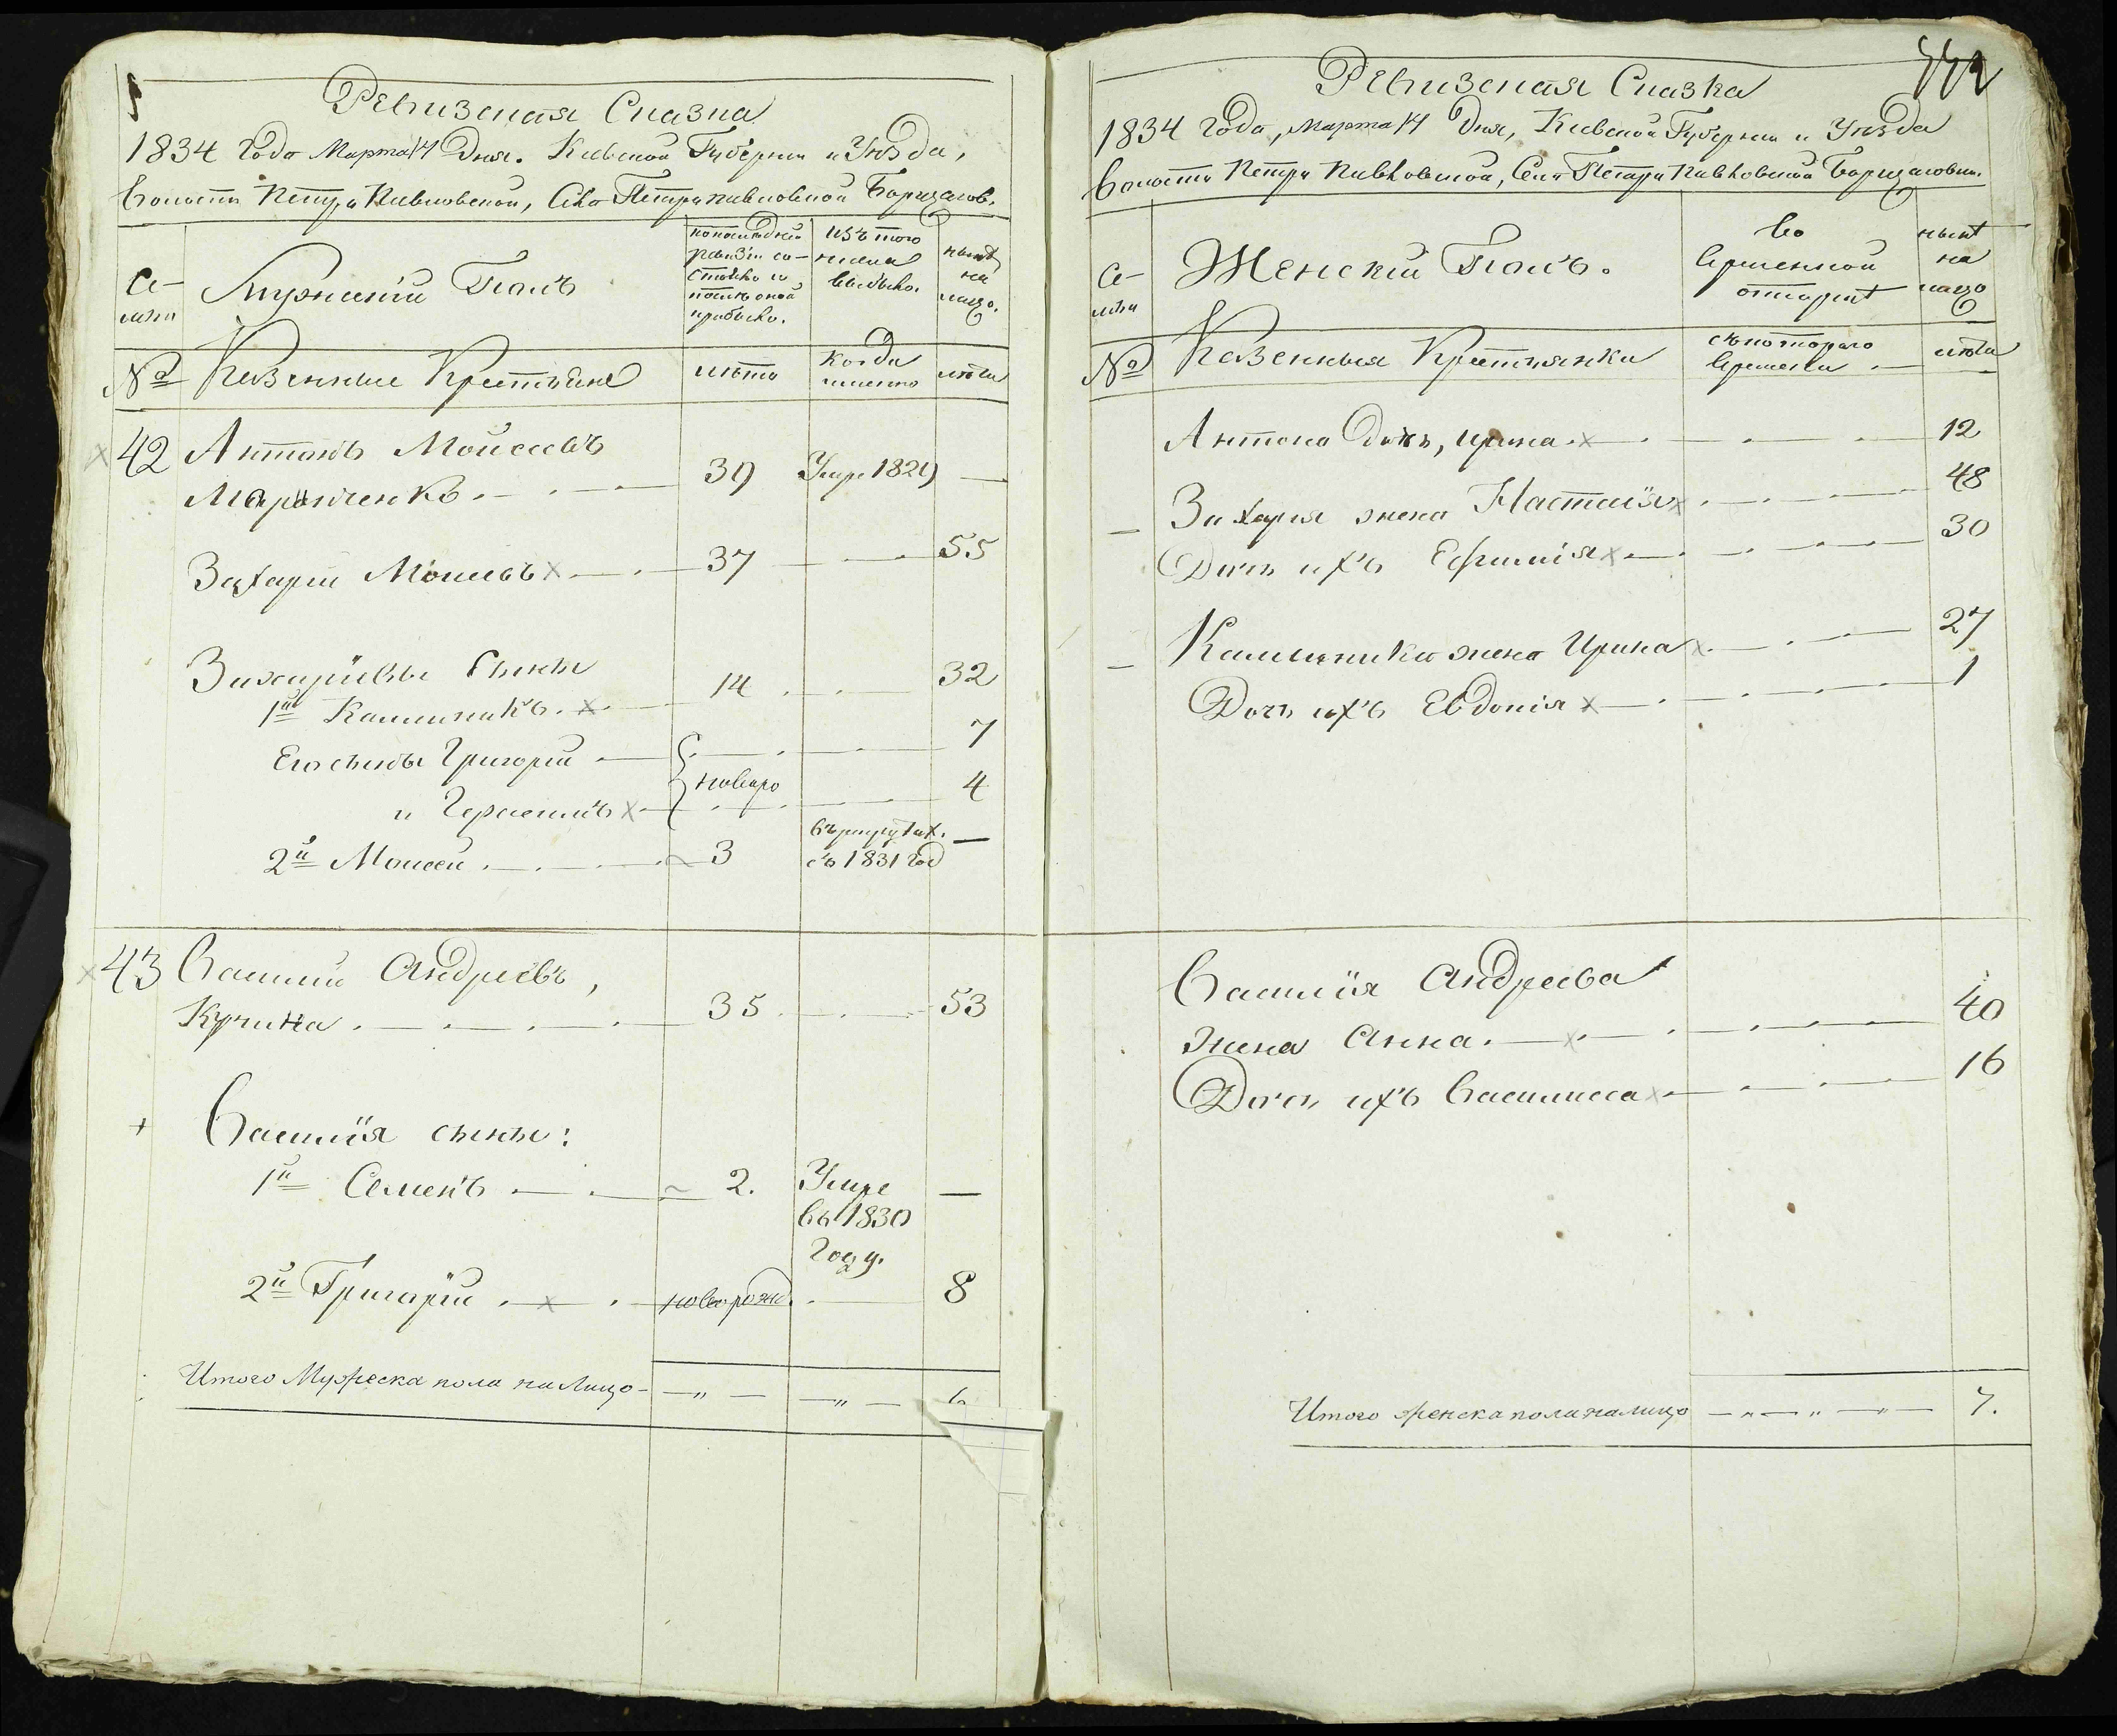 Ревизская Сказка
1834 Года Марта 14 Дня. Киевской Губернии и Уѣзда,
Волости Петропавловской, Села Петропавловской Борщагов.
Се-
мьи
Мужеский Полъ
по последней
ревизiи со-
стояло и
после оной
прибыло.
Изъ того
числа
выбыло.
нынѣ
на
лицо.
№
Казенные Крестьяне
лѣта
когда
именно
лѣта
42 Антонъ Мойсеевъ
39 Умре 1829 —
Захарiй Моисеевъ 37 55
Захарiевы Сыны
1й Калиникъ. 14 32
Его сыны Григорiй 7
новоро
и Герасимъ 4
2й Моисей 3
съ 1831 год —
43 Василий Андреевъ,
35 53
Василiя сыны:
1й Семенъ 2. Умре —
въ 1830
году.
2й Григорiй новорожд. 8
Итого Мужеска пола на Лицо 6
Ревизская Сказка
1834 Года, Марта 14 Дня, Киевской Губернии и Уѣзда
Волости Петропавловской, Села Петропавловской Борщаговки.
Се-
мьи
Женскiй Полъ.
Во
временной
отлучкѣ
нынѣ
на
лицо
№
Казенныя Крестьянки
съ котораго
времени
лѣта
Антона дочь, Ирина 12
Захарiя жена Настасiя 48
Дочь ихъ Ефимiя 30
Калиника жена Ирина 27
Дочь ихъ Евдокiя 1
Василiя Андреева
жена Анна. 40
Дочь ихъ Василисса 16
Итого женска пола на лицо 7.